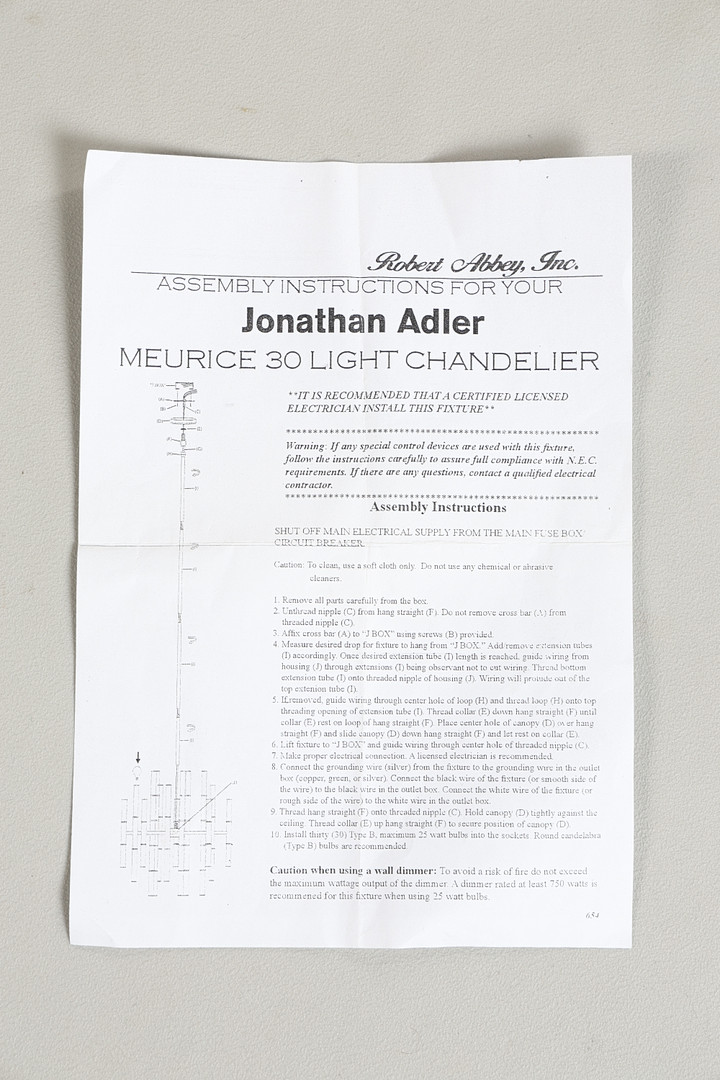 Robert Abbey, Inc.
ASSEMBLY INSTRUCTIONS FOR YOUR
Jonathan Adler
MEURICE 30 LIGHT CHANDELIER
**IT IS RECOMMENDED THAT A CERTIFIED LICENSED
ELECTRICIAN INSTALL THIS FIXTURE**
Warning: If any special control devices are used with this fixture,
follow the instructions carefully to assure full compliance with N.E.C.
requirements. If there are any questions, contact a qualified electrical
contractor.
Assembly Instructions
SHUT OFF MAIN ELECTRICAL SUPPLY FROM THE MAIN FUSE BOX/
CIRCUIT BREAKER.
Caution: To clean, use a soft cloth only. Do not use any chemical or abrasive
cleaners.
1. Remove all parts carefully from the box.
2. Unthread nipple (C) from hang straight (F). Do not remove cross bar (A) from
threaded nipple (C).
3. Affix cross bar (A) to "J BOX" using screws (B) provided.
4. Measure desired drop for fixture to hang from "J BOX." Add/remove extension tubes
(I) accordingly. Once desired extension tube (I) length is reached, guide wiring from
housing (J) through extensions (I) being observant not to cut wiring. Thread bottom
extension tube (I) onto threaded nipple of housing (J). Wiring will protude out of the
top extenion tube (I).
5. If removed, guide wiring through center hole of loop (H) and thread loop (H) onto top
threading opening of extension tube (I). Thread collar (E) down hang straight (F) until
collar (E) rest on loop of hang straight (F). Place center hole of canopy (D) over hang
straight (F) and slide canopy (D) down hang straight (F) and let rest on collar (E).
6. Lift fixture to "J BOX" and guide wiring through center hole of threaded nipple (C).
7. Make proper electrical connection. A licensed electrician is recommended.
8. Connect the grounding wire (silver) from the fixture to the grounding wire in the outlet
box (copper, green, or silver). Connect the black wire of the fixture (or smooth side of
the wire) to the black wire in the outlet box. Connect the white wire of the fixture (or
rough side of the wire) to the white wire in the outlet box.
9. Thread hang straight (F) onto threaded nipple (C). Hold canopy (D) tightly against the
ceiling. Thread collar (E) up hang straight (F) to secure position of canopy (D).
10. Install thirty (30) Type B, maximum 25 watt bulbs into the sockets. Round candelabra
(Type B) bulbs are recommended.
Caution when using a wall dimmer: To avoid a risk of fire do not exceed
the maximum wattage output of the dimmer. A dimmer rated at least 750 watts is
recommened for this fixture when using 25 watt bulbs.
654